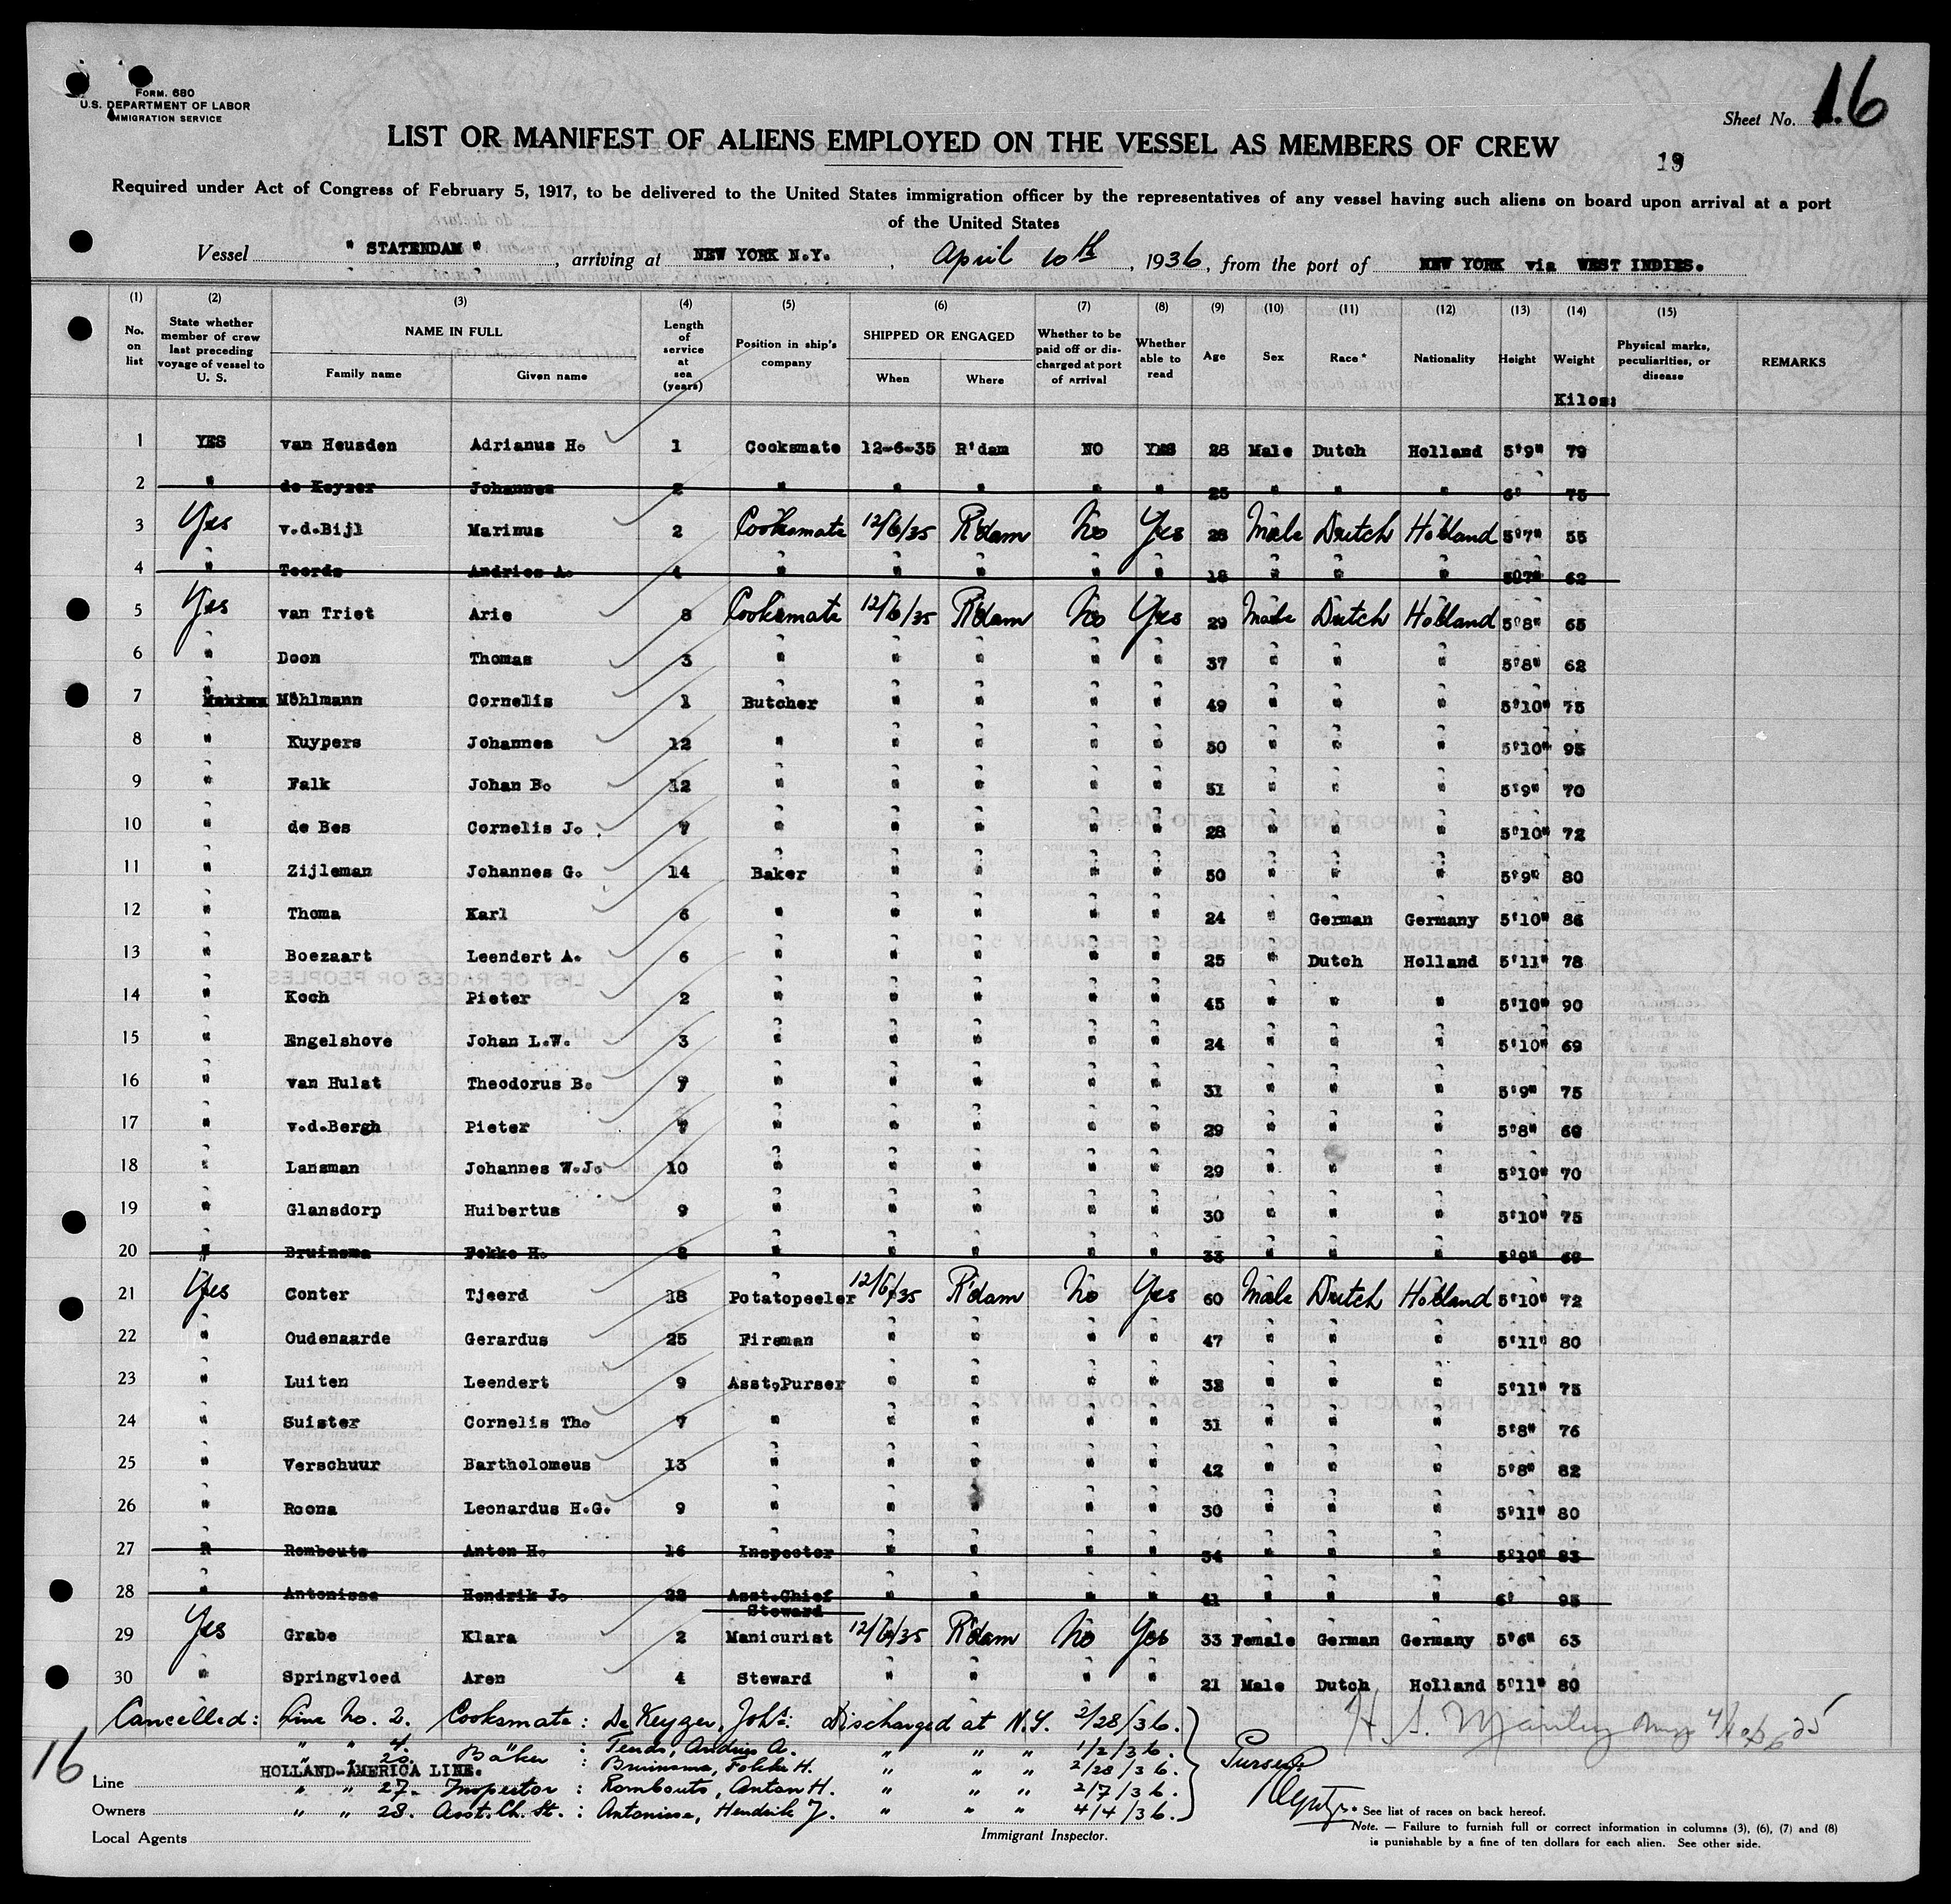 FORM. 680
U.S. DEPARTMENT OF LABOR
IMMIGRATION SERVICE
Sheet No. 16
LIST OR MANIFEST OF ALIENS EMPLOYED ON THE VESSEL AS MEMBERS OF CREW
19
Required under Act of Congress of February 5, 1917, to be delivered to the United States immigration officer by the representatives of any vessel having such aliens on board upon arrival at a port
of the United States
Vessel " STATENDAM " , arriving at NEW YORK N.Y. , April 10th , 1936, from the port of NEW YORK via WEST INDIES.
(1) (2) (3) (4) (5) (6) (7) (8) (9) (10) (11) (12) (13) (14) (15)
No. on list State whether member of crew last preceding voyage of vessel to U. S. NAME IN FULL Family name Given name Length of service at sea (years) Position in ship's company SHIPPED OR ENGAGED When Where Whether to be paid off or discharged at port of arrival Whether able to read Age Sex Race * Nationality Height Weight Physical marks, peculiarities, or disease REMARKS
Kilos:
1 YES van Heusden Adrianus H. 1 Cooksmate 12-6-35 R'dam NO YES 28 Male Dutch Holland 5'9" 79
2 " de Keyzer Johannes 2 " " " " " 25 " " " 6' 75
3 Yes v.d.Bijl Marinus 2 Cooksmate 12/6/35 R'dam No Yes 28 Male Dutch Holland 5'7" 55
4 " Teerds Andries A. 4 " " " " " 18 " " " 5'7" 62
5 Yes van Triet Arie 8 Cooksmate 12/6/35 R'dam No Yes 29 Male Dutch Holland 5'8" 65
6 " Doon Thomas 3 " " " " " 37 " " " 5'8" 62
7 " Möhlmann Cornelis 1 Butcher " " " " 49 " " " 5'10" 75
8 " Kuypers Johannes 12 " " " " " 50 " " " 5'10" 95
9 " Falk Johan B. 12 " " " " " 51 " " " 5'9" 70
10 " de Bes Cornelis J. 7 " " " " " 28 " " " 5'10" 72
11 " Zijleman Johannes G. 14 Baker " " " " 50 " " " 5'9" 80
12 " Thoma Karl 6 " " " " " 24 " German Germany 5'10" 86
13 " Boezaart Leendert A. 6 " " " " " 25 " Dutch Holland 5'11" 78
14 " Koch Pieter 2 " " " " " 45 " " " 5'10" 90
15 " Engelshove Johan L.W. 3 " " " " " 24 " " " 5'10" 69
16 " van Hulst Theodorus B. 7 " " " " " 31 " " " 5'9" 75
17 " v.d.Bergh Pieter 7 " " " " " 29 " " " 5'8" 60
18 " Lansman Johannes W.J. 10 " " " " " 29 " " " 5'10" 70
19 " Glansdorp Huibertus 9 " " " " " 30 " " " 5'10" 75
20 " Bruinsma Fokke H. 8 " " " " " 33 " " " 5'9" 69
21 Yes Conter Tjeerd 18 Potatopeeler 12/6/35 R'dam No Yes 60 Male Dutch Holland 5'10" 72
22 " Oudenaarde Gerardus 25 Fireman " " " " 47 " " " 5'11" 80
23 " Luiten Leendert 9 Asst.Purser " " " " 32 " " " 5'11" 75
24 " Suister Cornelis Th. 7 " " " " " 31 " " " 5'8" 76
25 " Verschuur Bartholomeus 13 " " " " " 42 " " " 5'8" 82
26 " Roona Leonardus H.G. 9 " " " " " 30 " " " 5'11" 80
27 " Rombouts Anton H. 16 Inspector " " " " 34 " " " 5'10" 83
28 " Antonisse Hendrik J. 22 Asst.Chief Steward " " " " 41 " " " 6' 95
29 Yes Grabe Klara 2 Manicurist 12/6/35 R'dam No Yes 33 Female German Germany 5'6" 63
30 " Springvloed Aren 4 Steward " " " " 21 Male Dutch Holland 5'11" 80
Cancelled: Line No. 2. Cooksmate: De Keyzer, Johs. Discharged at N.Y. 2/28/36.
" " 4. : Teerds, Andries A. " " " 1/2/36.
" " 20. Baker : Bruinsma, Fokke H. " " " 2/28/36.
" " 27. Inspector : Rombouts, Anton H. " " " 2/7/36.
" " 28. Asst. Ch. St. : Antonisse, Hendrik J. " " " 4/4/36.
Purser
H. S. Manley
16
Line HOLLAND-AMERICA LINE.
Owners
Local Agents
Immigrant Inspector.
* See list of races on back hereof.
Note. — Failure to furnish full or correct information in columns (3), (6), (7) and (8)
is punishable by a fine of ten dollars for each alien. See other side.